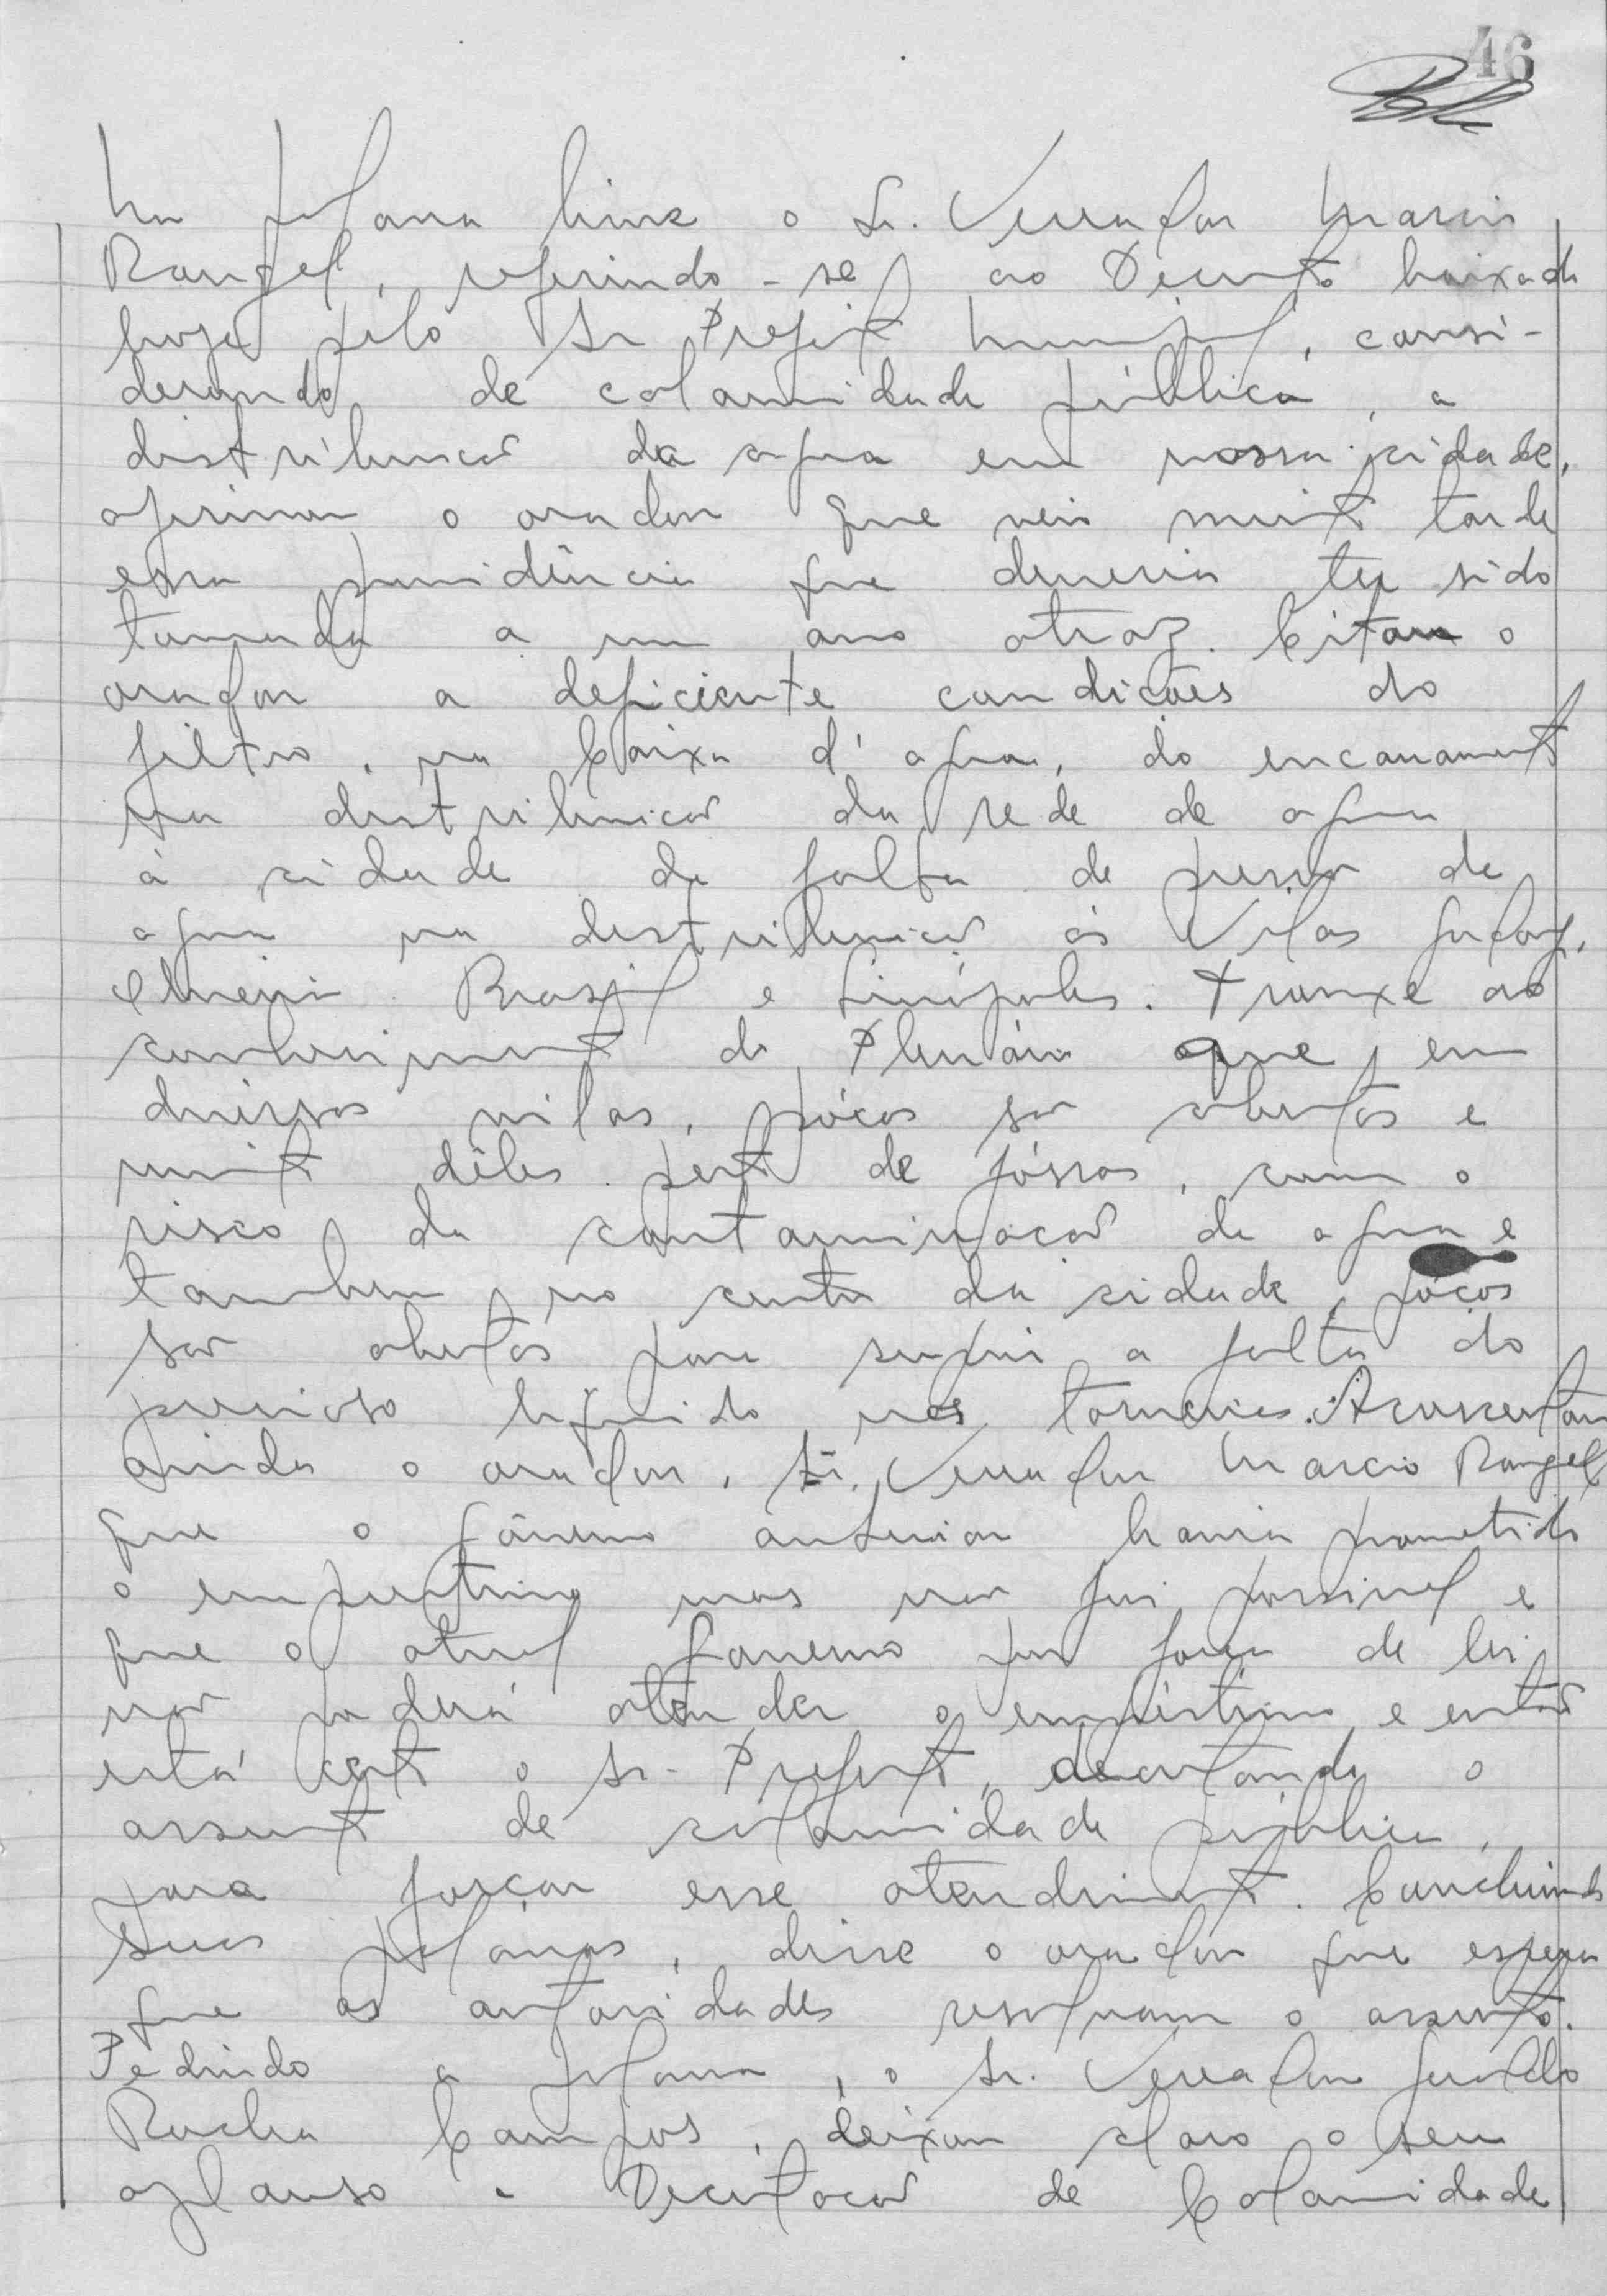 46
Na palavra livre o Sr. Vereador Marcio
Rangel, referindo-se ao Decreto baixado
hoje pelo Sr Prefeito Municipal, consi-
derando de calamidade pública, a
distribuicão da agua em nossa cidade,
afirmou o orador que veio muito tarde
essa providência que deveria ter sido
tomada a um ano atraz. Citou o
orador a deficiente condicões do
filtro, na Caixa d'agua, do encanamento
na distribuicão da rede de agua
à cidade da falta de pressão de
agua na distribuicão ás Vilas
Brasil e Linópolis. Trouxe ao
conhecimento do Plenário que em
diversas vilas, pócos são abertos e
muito dêles perto de fóssas, com o
risco da contaminacão da agua e
tambem no centro da cidade, póços
são abertos para suprir a falta do
precioso liquido nas torneiras. Acrescentou
ainda o orador, Sr. Vereador Marcio Rangel
que o govêrno anterior havia prometido
o emprestimo mas não foi possivel e
que o atual Governo por força de lei
não poderá atender o empréstimo e então
está certo o Sr. Prefeito, decretando o
assunto de calamidade pública,
para forçar esse atendimento. Concluindo
suas palavras, disse o orador que espera
que as autoridades resolvam o assunto.
Pedindo a palavra, o Sr. Vereador Geraldo
Rocha Campos, deixou claro o seu
aplauso a Decretacão de Calamidade